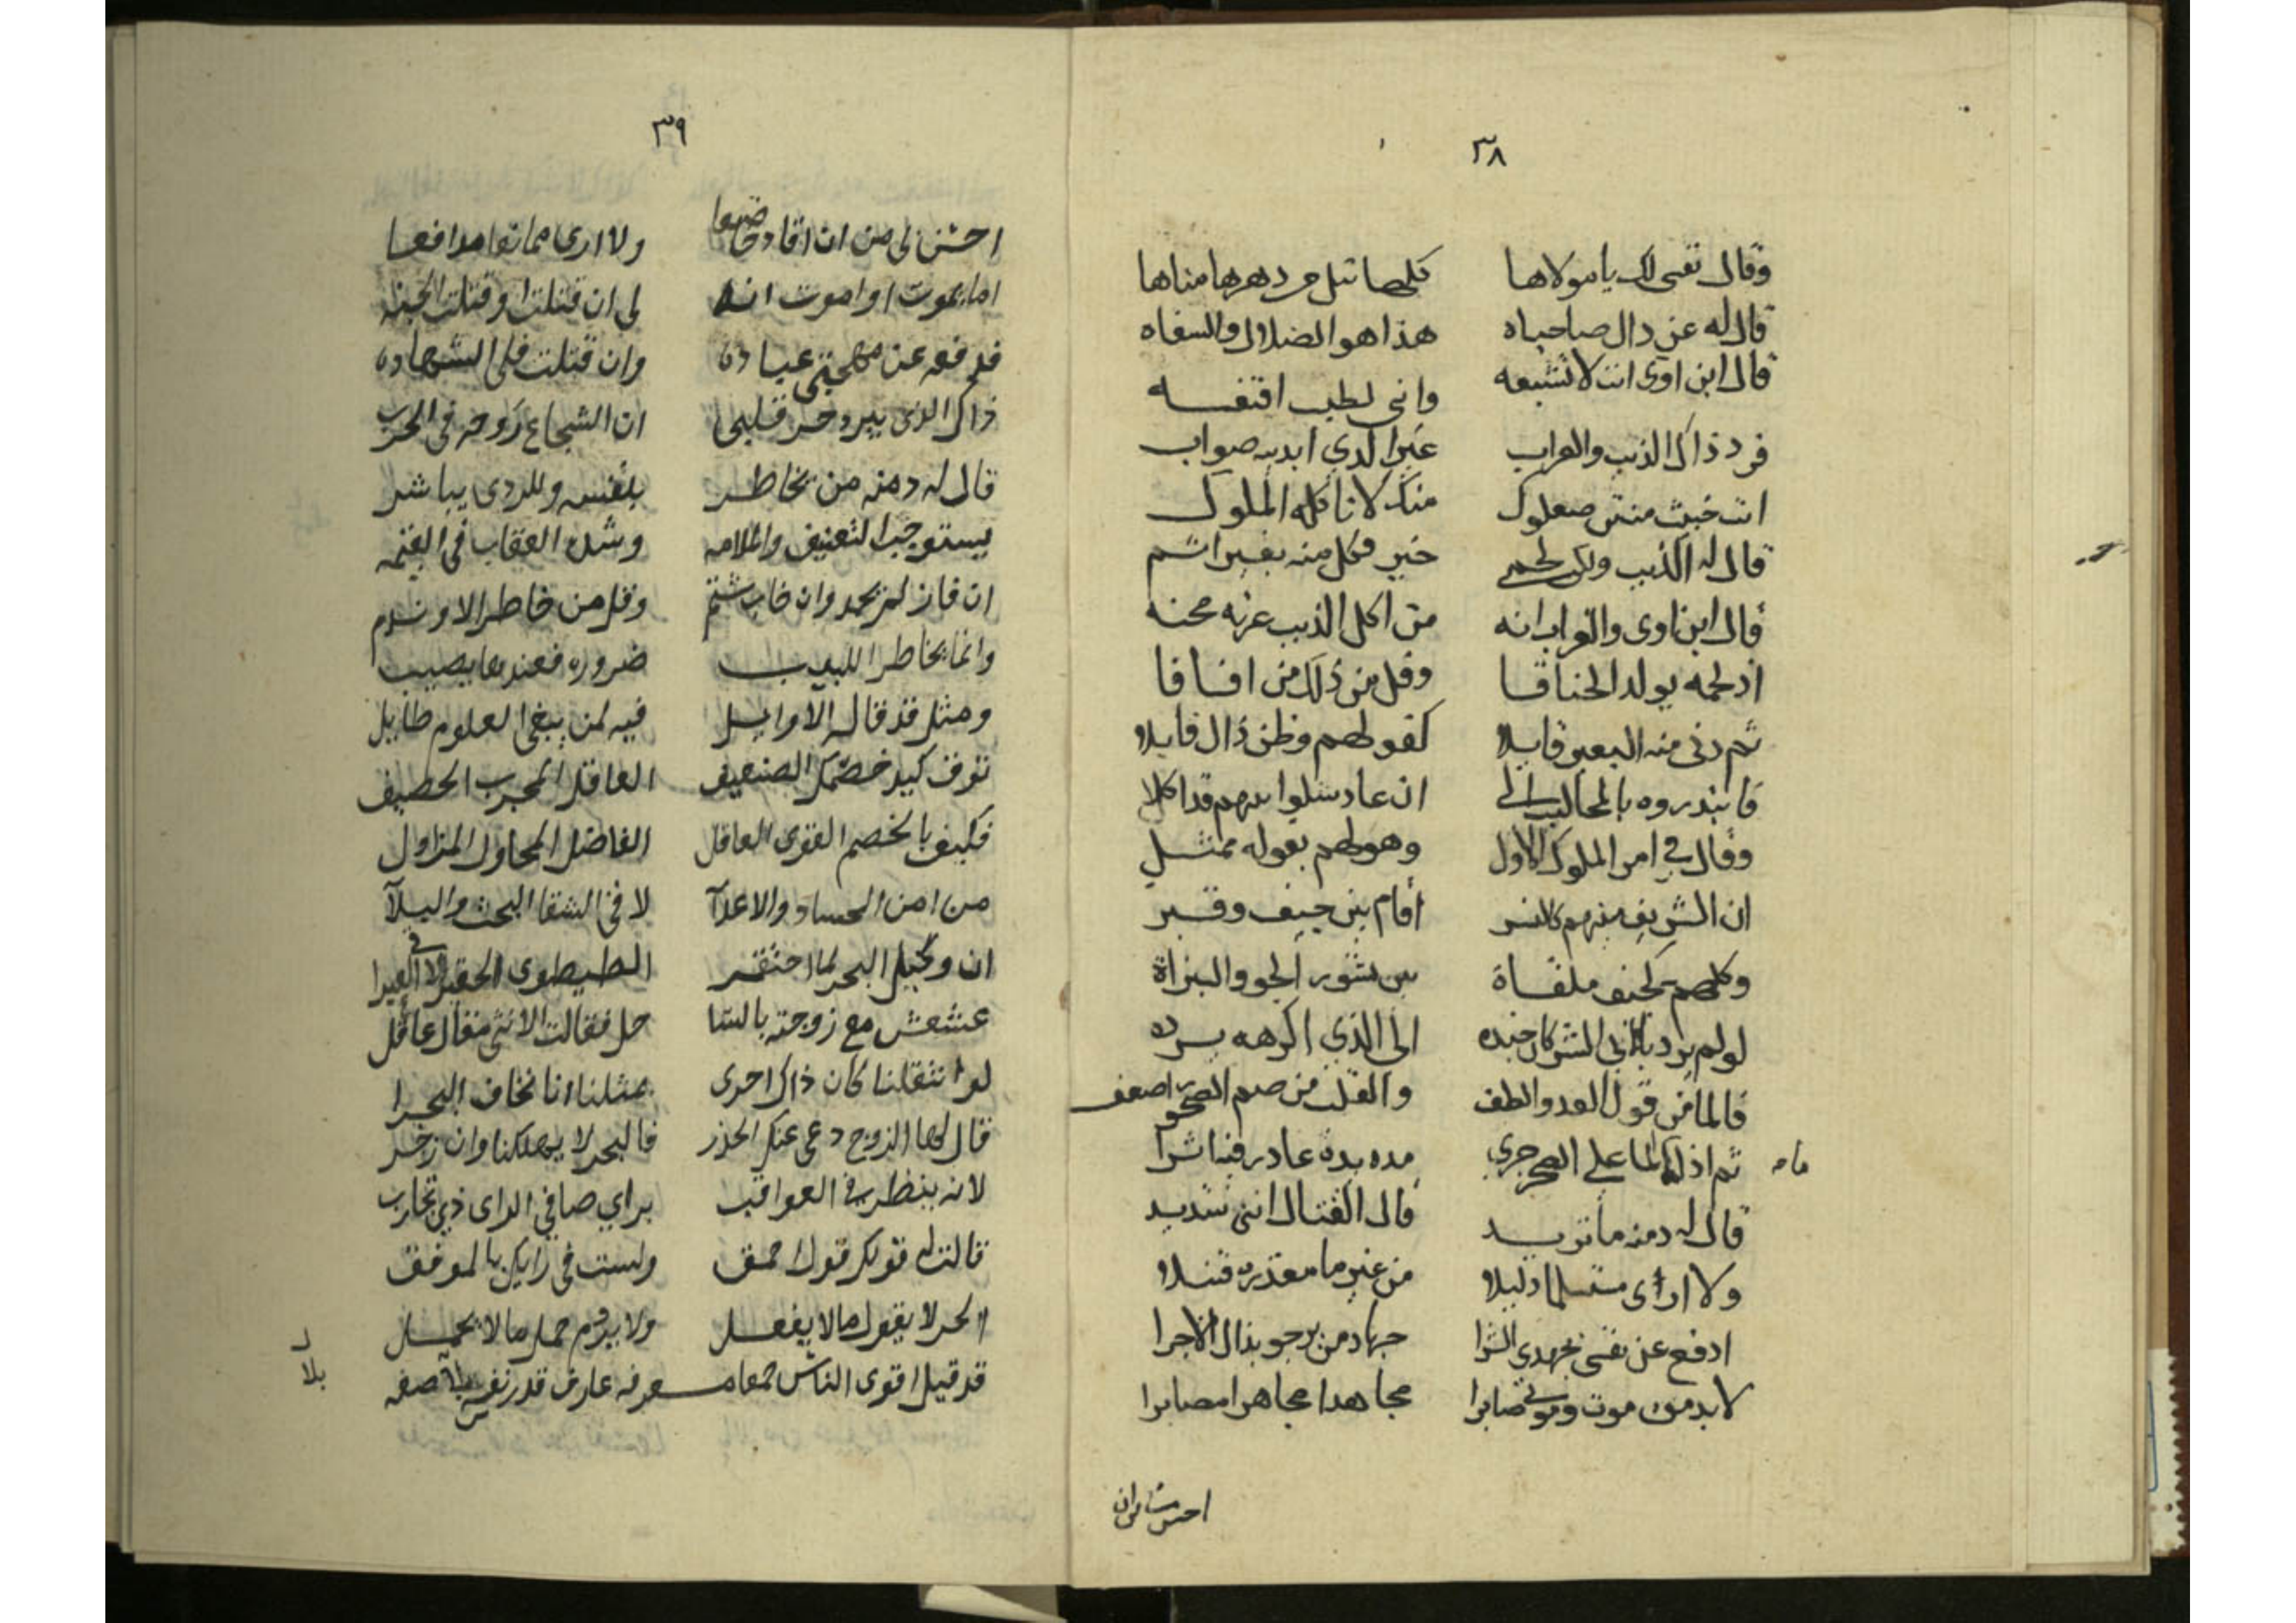 ٣٨
وقال نفسى لك يا مولاها كلها تنل من دهرها مناها
قال له عن ذال صاحباه هذا هو الضلال والسفاه
قال ابن اوى انت لا تشبعه وانى لطيب اقتفـــه
فرد ذاك الذيب والغراب غير الذي ابديه صواب
انت خبيث منتن صعلوك منك لا تاكله الملوك
قال له الذيب ولكن لحمى خير فكل منه بغير اثم
قال ابن اوى والغراب انه من اكل الذيب عرته محنه
اذ لحمه يولد الخناقا وقل من ذلك من افاقا
ثم دنى منه البعير قايلا كقولهم وظن ذال قايلا
فابتدروه بالمخالب الى ان عاد بينهم قد اكلا
وقال في امر الملوك الاول وهو لهم بقوله ممثــل
ان الشريف منهم كالنسر أقام بين جيف وقــبر
وكلهم كجيف ملقاة بين نسور الجو والبزاة
لو لم يرد بى الشر كان جنده الى الذي اكرهه يــرده
فالما من قول العدو الطف والقلب من صم الصخر اضعف
ثم اذا الما على الصخر جري مده بدة عاد فيه اثرا
ماء
قال له دمنه ما تريــد قال القتال اننى شديد
ولا ارى مستسلما ذليلا من غير ما معذرة قتيلا
ادفع عن نفسى بجهدي الشرا جهاد من يرجو بذال الاجرا
لا بد من موت وموتى صابرا مجاهدا مجاهرا مصابرا
احسن من ان
٣٩
احسن لى من ان اقاد خاضعا ولا ارى مدافعا
اما يموت او اموت انه لى ان قتلت او قتلت الجنه
فدفعه عن مهجتى عباده وان قتلت فلى الشهاده
ذاك الذى يبرد حر قلبى ان الشجاع روحه فى الحرب
قال له دمنه من يخاطــر بنفسه وللردى يباشر
يستوجب التعنيف والملامه وشدة العقاب فى القيمه
ان فاز لم يحمد وان خاب شتم وقل من خاطر الا وندم
وانما يخاطر اللبيــب ضرورة فعندها يصيب
ومثل قد قاله الاوايــل فيه لمن يبغى العلوم طايل
توق كيد خصمك الضعيف العاقل المجرب الحصيف
فكيف بالخصم القوى العاقل الفاضل المحاول المزاول
من امن الحساد والاعدآ لاقى الشقا البحت والبلآ
ان وكيل البحر لما احتقــر الطيطوى الحقير لاقى العبرا
عشعش مع زوجته بالسا حل فقالت الانثى مقال عاقل
لو انتقلنا كان ذاك احرى بمثلنا انا نخاف البحرا
قال لها الزوج دعى عنك الحذر فالبحر لا يهلكنا وان زخر
لانه ينظر فى العواقب براي صافي الراى ذي تجارب
قالت له قولك قول احمق ولست فى رايك بالموفق
الحر لا يقول ما لا يفعــل ولا يروم حمل ما لا يحمــل
قد قيل اقوى الناس جمعا معرفه عارف قدر نفسه بلا صفه
بلا